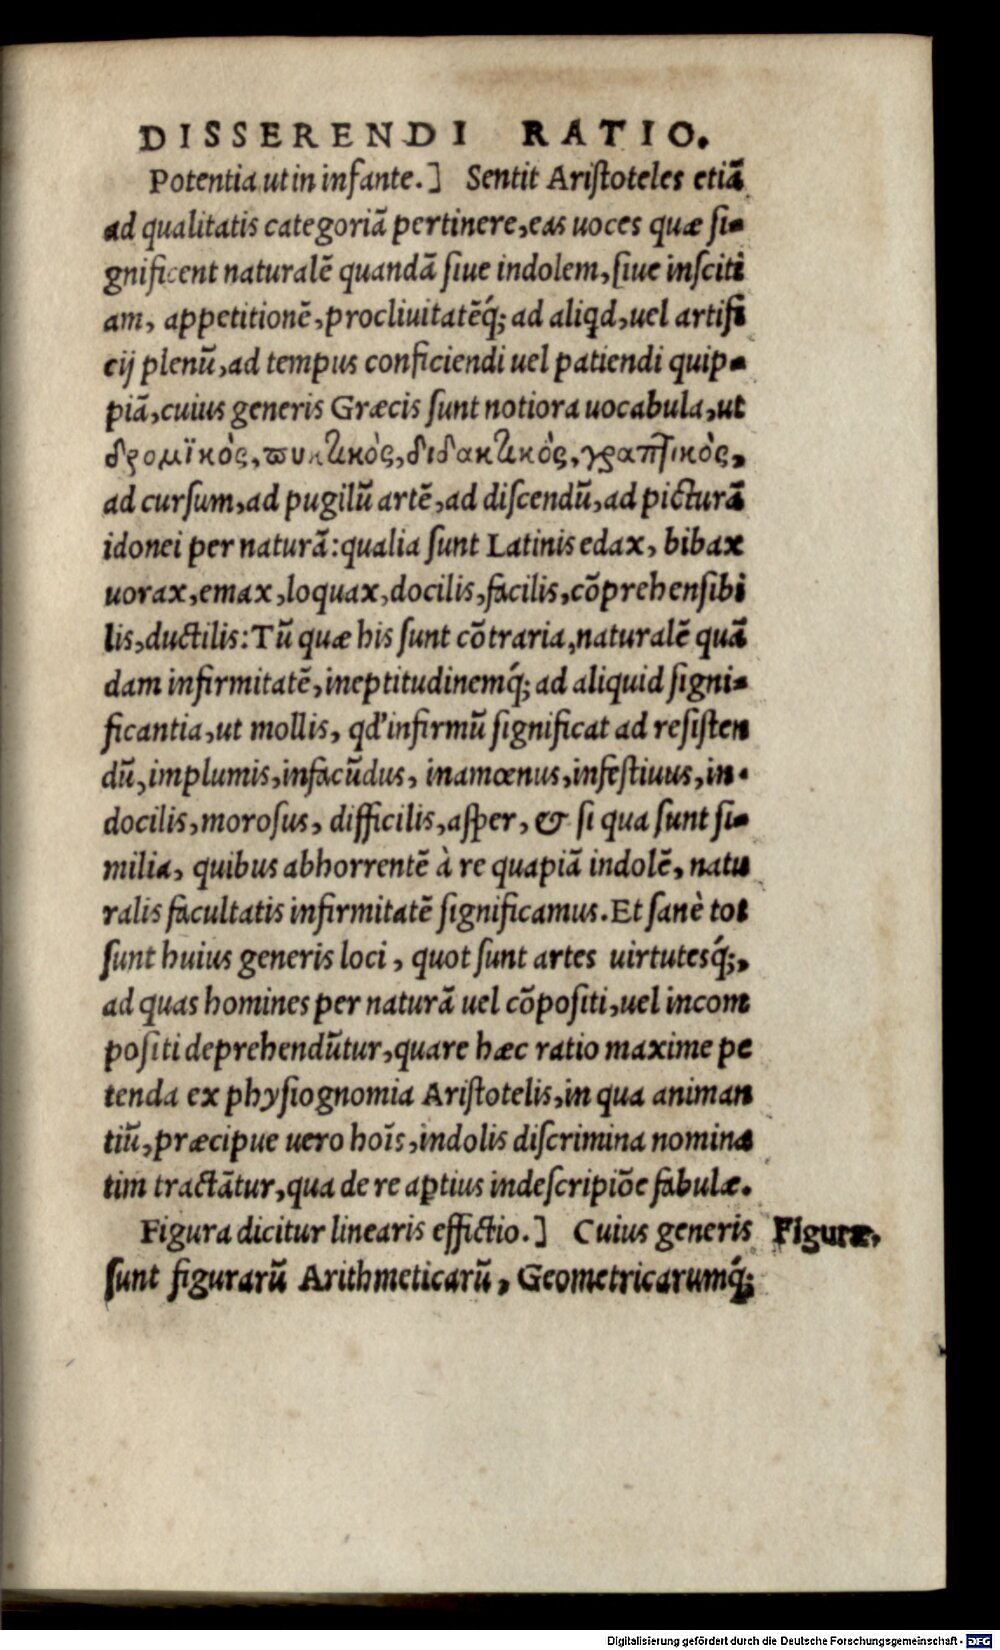 DISSERENDI RATIO.
Potentia ut in infante.] Sentit Ariſtoteles etiã
ad qualitatis categoriã pertinere, eas uoces quæ ſi-
gnificent naturalẽ quandã ſiue indolem, ſiue inſciti
am, appetitionẽ, procliuitatẽq́; ad aliqd, uel artifi
cij plenũ, ad tempus conficiendi uel patiendi quip-
piã, cuius generis Græcis ſunt notiora uocabula, ut
δρομϊκὸς, πυκτικὸς, διδακτικὸς, γραπτικὸς,
ad curſum, ad pugilũ artẽ, ad diſcendũ, ad picturã
idonei per naturã: qualia ſunt Latinis edax, bibax
uorax, emax, loquax, docilis, facilis, cõprehenſibi
lis, ductilis: Tũ quæ his ſunt cõtraria, naturalẽ quã
dam infirmitatẽ, ineptitudinemq́; ad aliquid signi-
ficantia, ut mollis, qd' infirmũ ſignificat ad reſiſten
dũ, implumis, infacũdus, inamœnus, infeſtiuus, in-
docilis, moroſus, difficilis, aſper, & ſi qua ſunt ſi-
milia, quibus abhorrentẽ à re quapiã indolẽ, natu
ralis facultatis infirmitatẽ ſignificamus. Et ſanè tot
ſunt huius generis loci, quot ſunt artes uirtutesq́;,
ad quas homines per naturã uel cõpoſiti, uel incom
poſiti deprehendũtur, quare hæc ratio maxime pe
tenda ex phyſiognomia Ariſtotelis, in qua animan
tiũ, præcipue uero hoĩs, indolis diſcrimina nomina
tim tractãtur, qua de re aptius indeſcripiõe fabulæ.
Figura dicitur linearis effictio.] Cuius generis
Figuræ.
ſunt figurarũ Arithmeticarũ, Geometricarumq́;
Digitalisierung gefördert durch die Deutsche Forschungsgemeinschaft - DFG